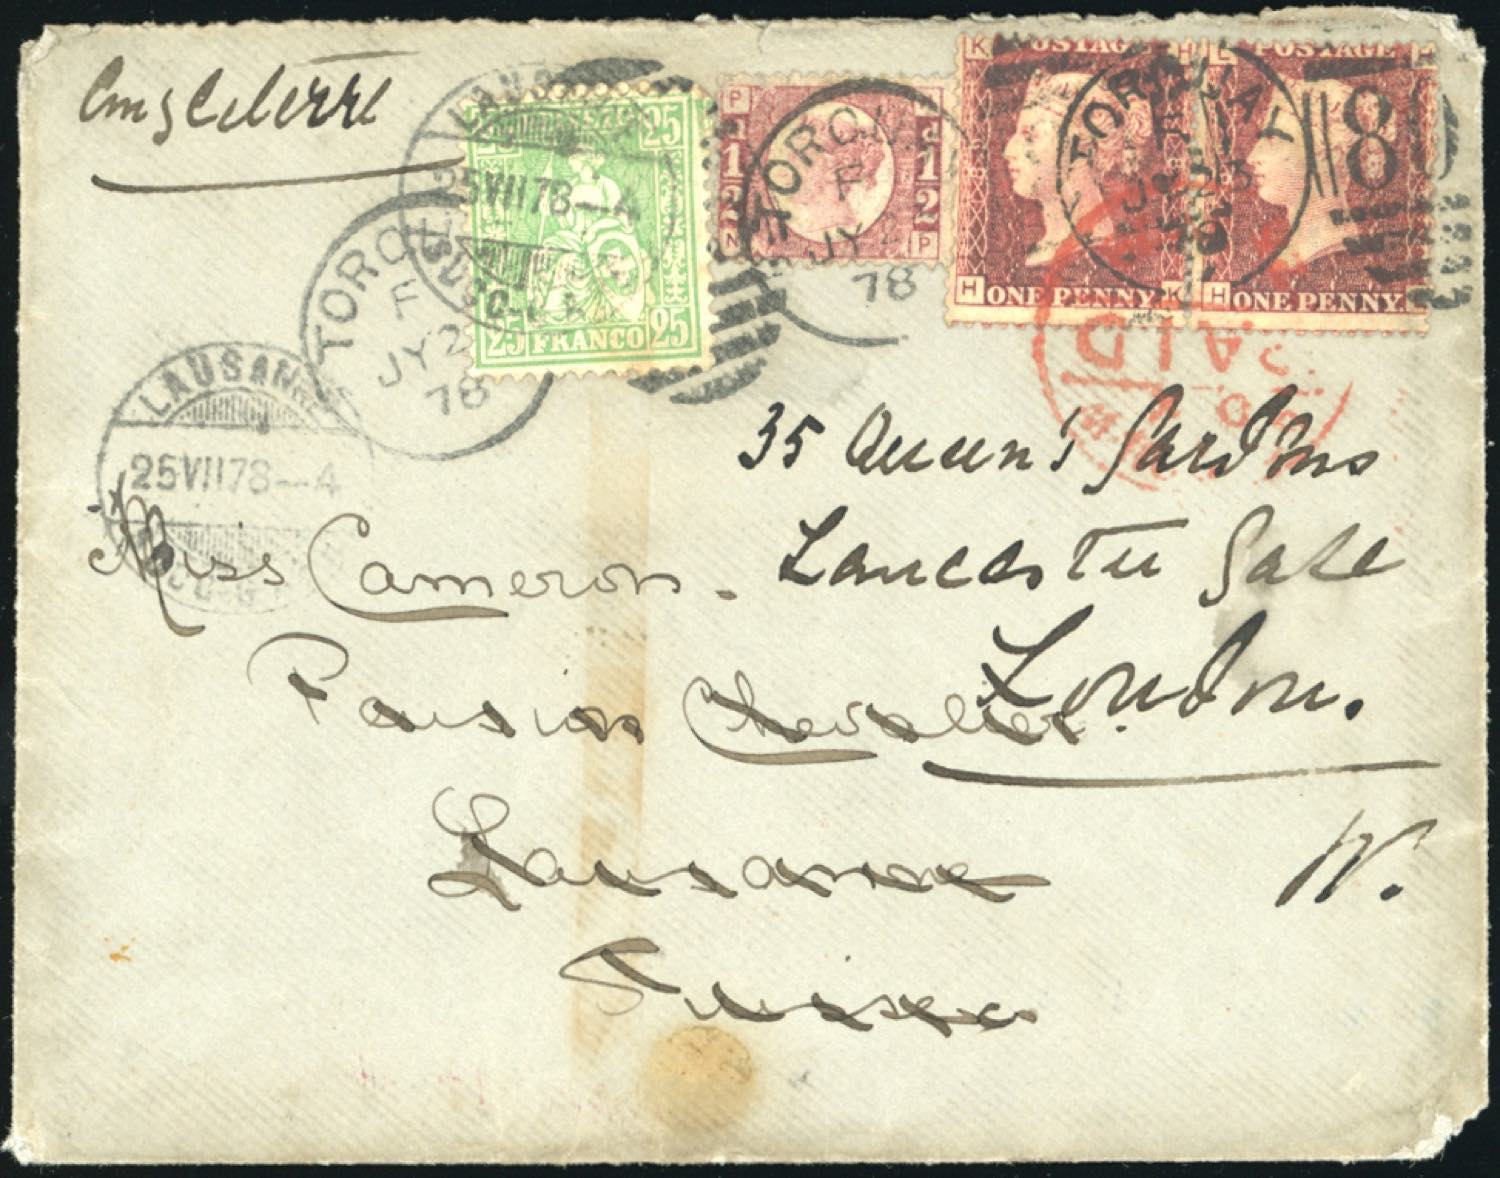 Angleterre
LAUSANNE
25 VII 78 — 4
TORQUAY
F
JY 2
78
LAUSANNE
25 VII 78 — 4
25 25
25 FRANCO 25
P
1/2 1/2
N P
TORQUAY
F
JY 2
78
K POSTAGE H
H ONE PENNY. K
L POSTAGE H
H ONE PENNY.
TORQUAY
F
78
8
PAID
35 Queen's Gardens
Lancaster Gate
London.
W.
Miss Cameron.
Pension Chevalier.
Lausanne
Suisse